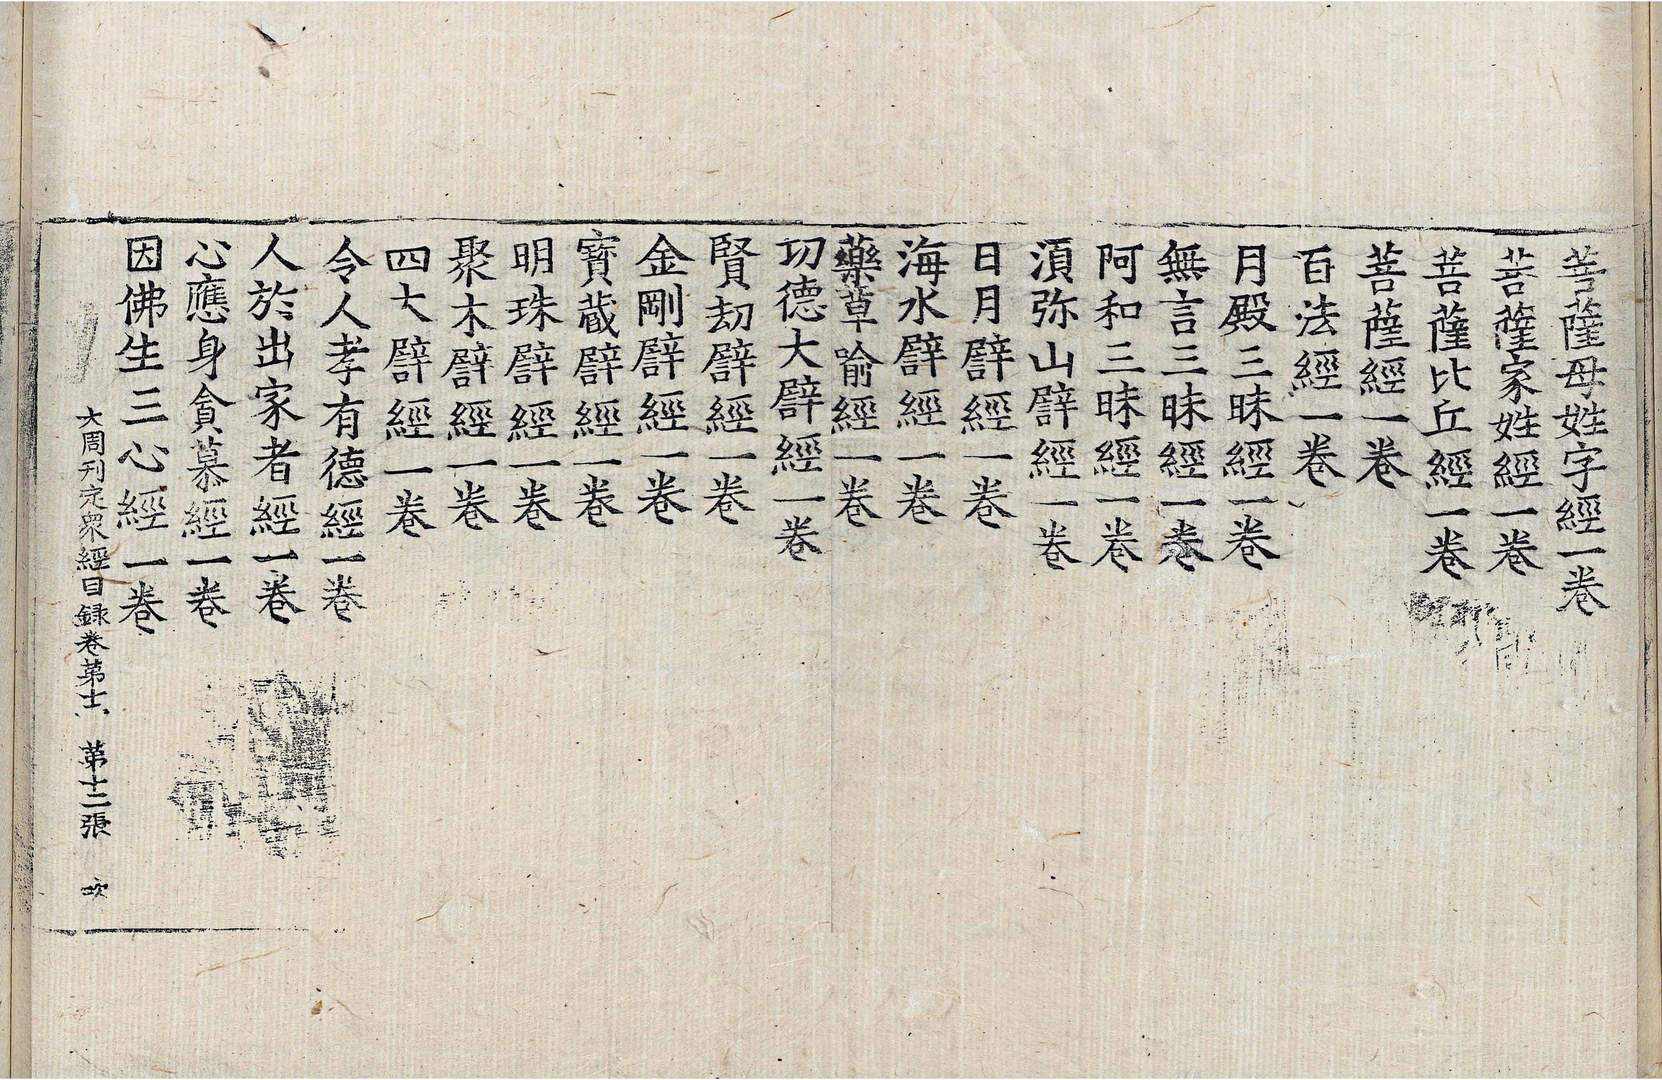 菩薩母姓字經一卷
菩薩家姓經一卷
菩薩比丘經一卷
菩薩經一卷
百法經一卷
月殿三昧經一卷
無言三昧經一卷
阿和三昧經一卷
湏弥山譬經一卷
日月譬經一卷
海水譬經一卷
藥草喻經一卷
功德大譬經一卷
賢劫譬經一卷
金剛譬經一卷
寶藏譬經一卷
明珠譬經一卷
聚木譬經一卷
四大譬經一卷
令人孝有德經一卷
人於出家者經一卷
心應身貪慕經一卷
因佛生三心經一卷
大周刊定衆經目録卷第 第十二張